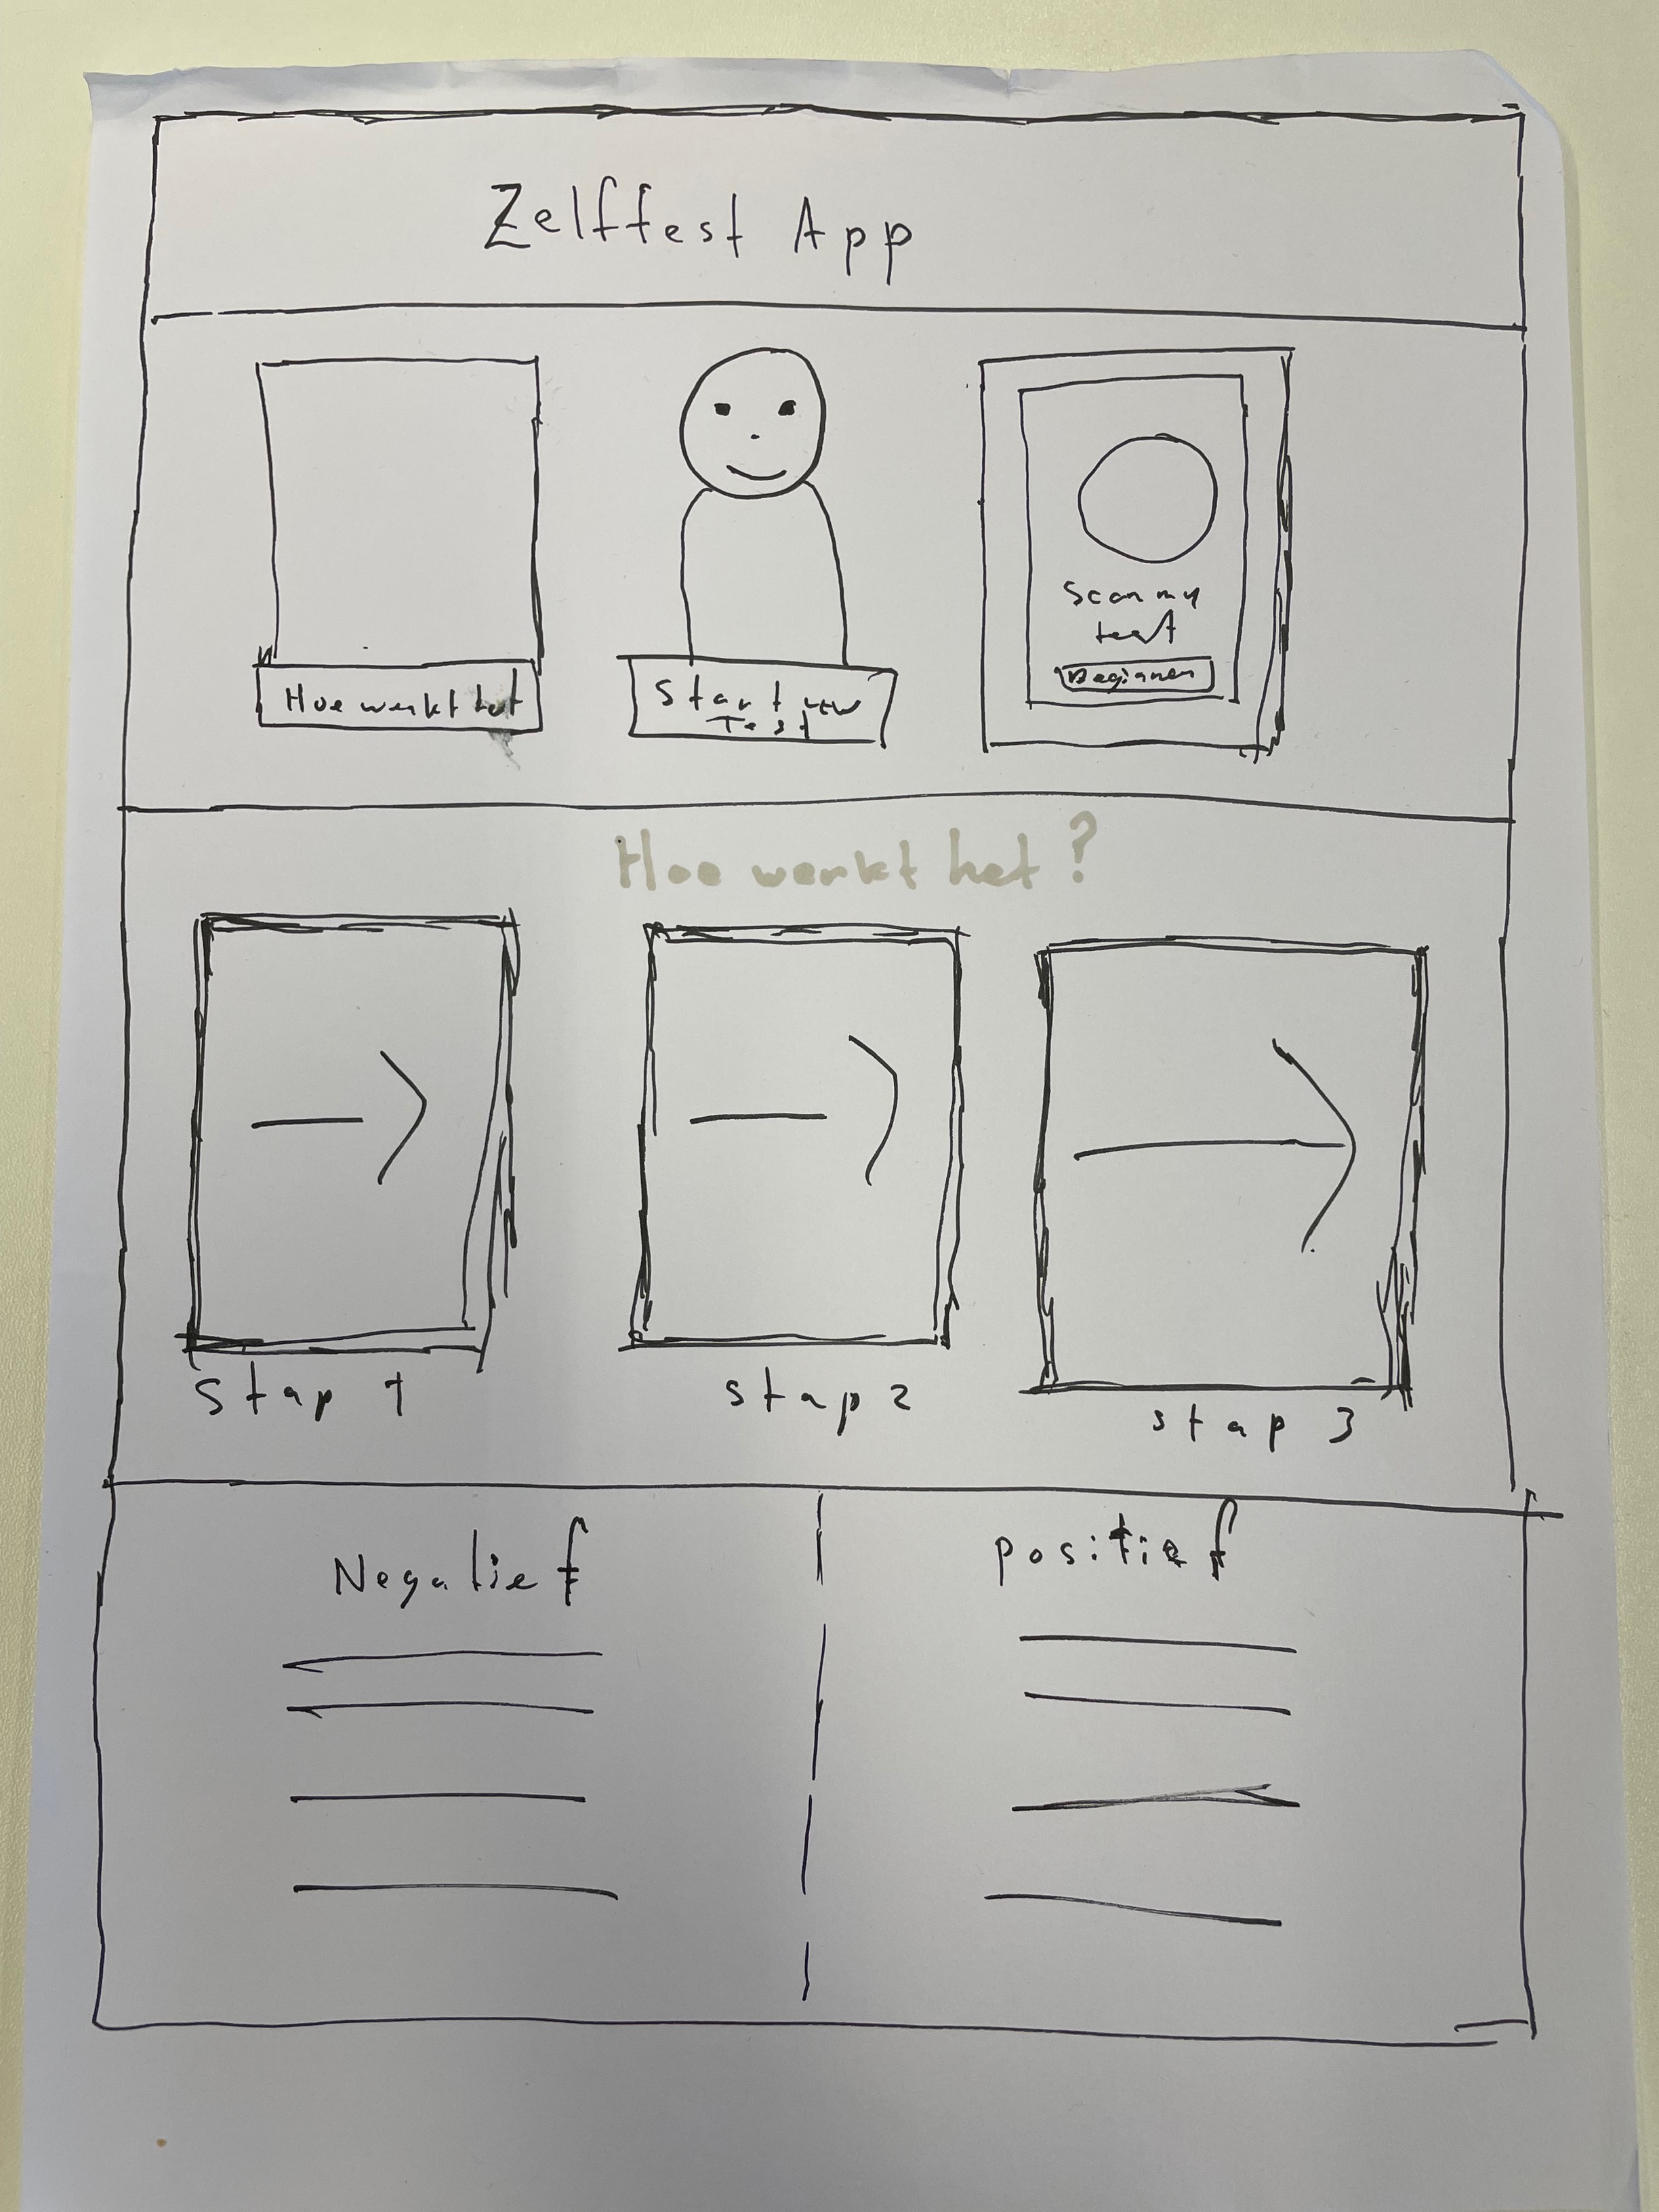 Zelftest App
Hoe werkt het
Start uw
Test
Scan my
test
Beginnen
Hoe werkt het?
Stap 1
stap 2
stap 3
Negatief
positief